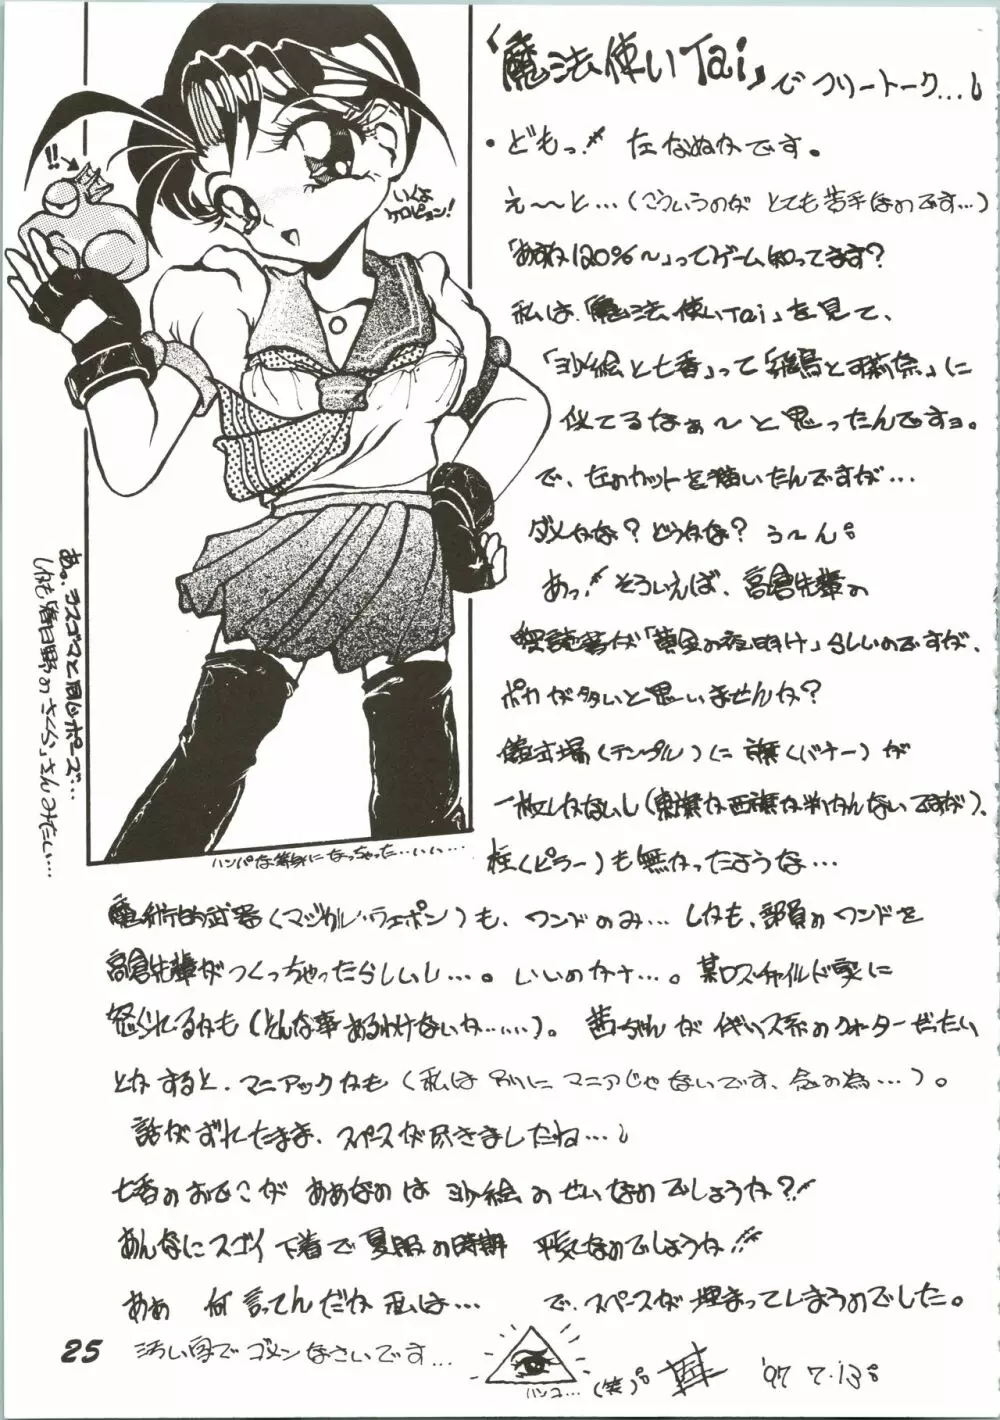 「魔法使いTai」でフリートーク…!
・どもっ!! 左なぬかです。
え〜と…(こういうのが とても苦手なのです…)
「あすか120%〜」ってゲーム知ってます?
私は、「魔法使いTai」を見て、
「沙絵と七香」って「飛鳥と可莉奈」に
似てるなぁ〜と思ったんですョ。
で、左のカットを描いたんですが…
ダメかな?どうかな? う〜ん。
あっ!! そういえば、高倉先輩の
愛読書が「黄金の夜明け」らしいのですが、
ポカが多いと思いませんか?
儀式場(テンプル)に 旗(バナー)が
一枚しかないし(東旗か西旗か判かんないですが)、
柱(ピラー)も無かったような…
魔術的武器(マジカル・ウェポン)も、ワンドのみ… しかも、部員のワンドを
高倉先輩がつくっちゃったらしいし…。 いいのかナ…。 某ロスチャイルド家に
怒られるかも(そんな事あるわけないか……)。 茜ちゃんが イギリス系のクォーターだったい
とかすると、マニアックかも(私は別にマニアじゃないです、念の為…)。
話がずれたまま、スペースが尽きましたね…!
七香のおでこが ああなのは 沙絵のせいなのでしょうか?!!
あんなにスゴイ下着で夏服の時期 平気なのでしょうか!!
ああ 何言ってんだか私は… で、スペースが埋まってしまうのでした。
汚い字で ゴメンなさいです…
ハンコ…
(笑)。
'97 7.13。
!!
いくよ
ケロピョン!
あっ、ラスゴマと同じポーズ…
しかも春日野の「さくら」さんみたい…
ハンパな等身になっちゃった……
25